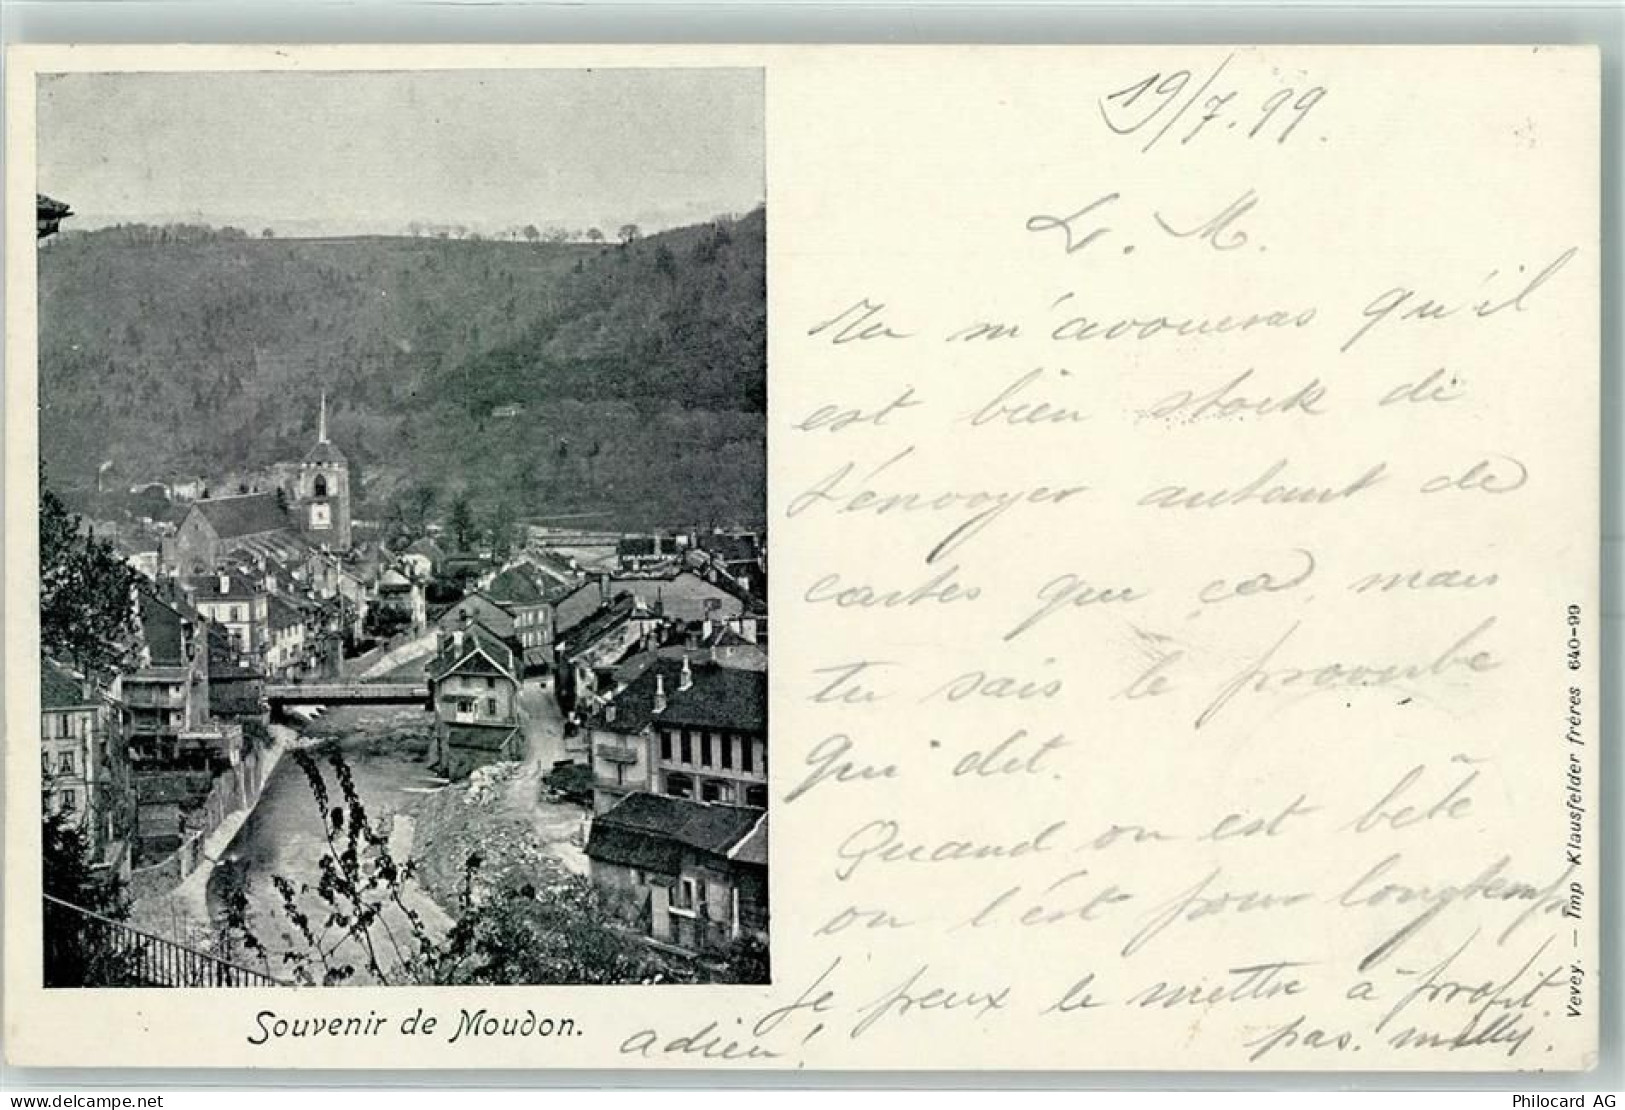 19/7.99.
L. M.
Tu m'avoueras qu'il
est bien stock de
t'envoyer autant de
cartes que ça, mais
tu sais le proverbe
qui dit.
Quand on est bête
on l'est pour longtemps
je peux le mettre à profit.
pas.
adieu!
Souvenir de Moudon.
Vevey. — Imp Klausfelder frères 640-99
www.delcampe.net
Philocard AG